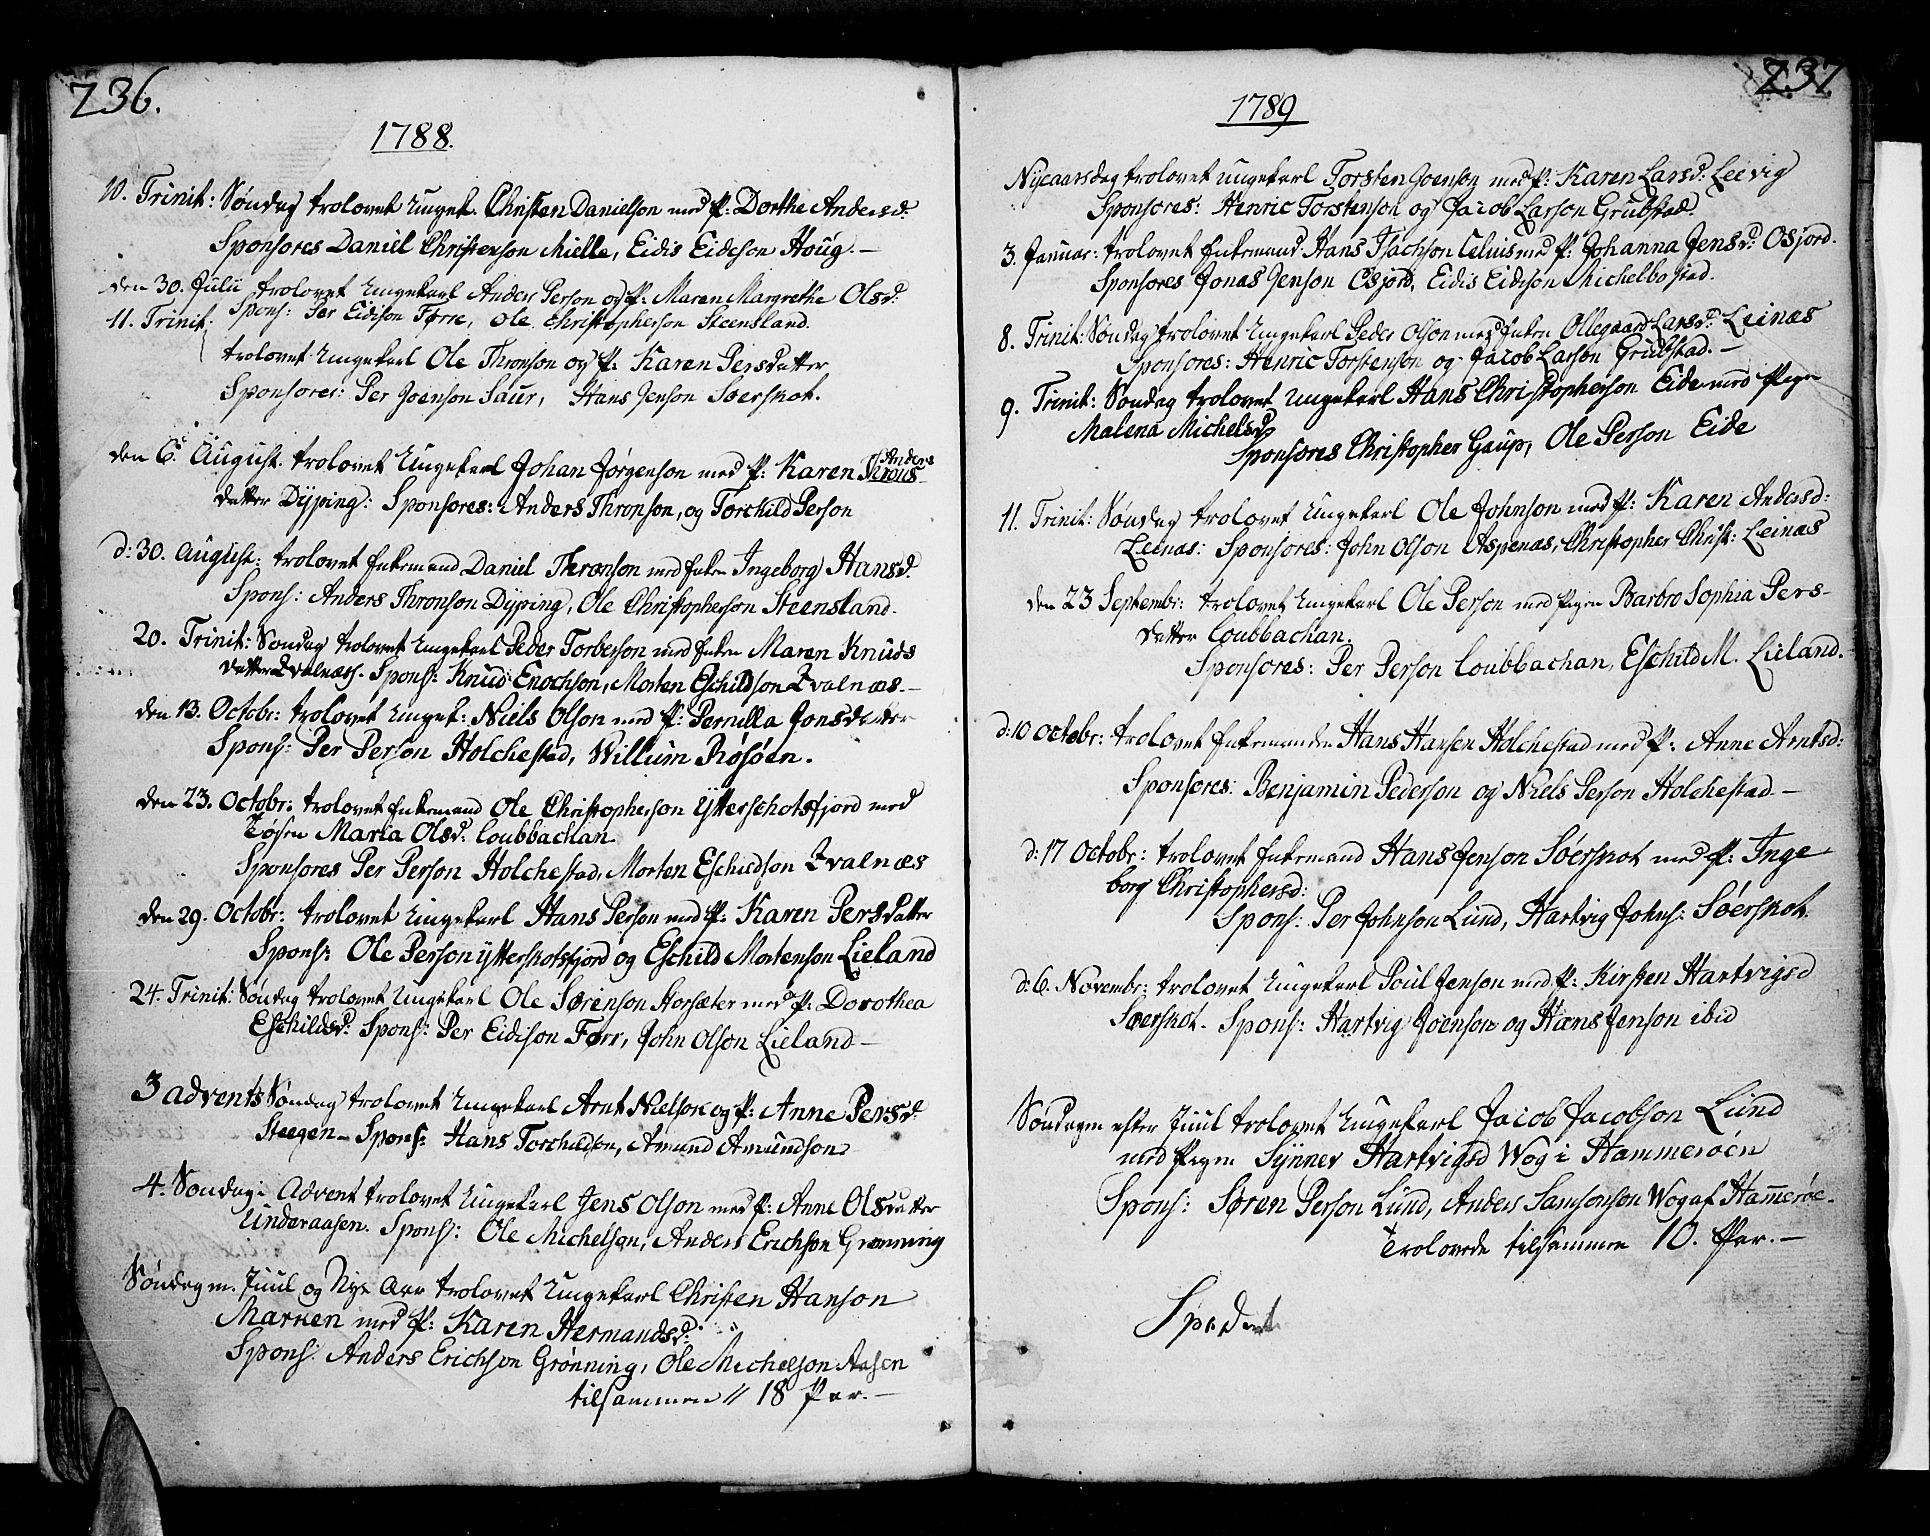 236.
1788.
10. Trinit: Søndag trolovet Ungek. Christen Danielson med P: Dorthe Andersd:
Sponsores Daniel Christenson Mielle, Eidis Eideson Houg.—
den 30. Julii trolovet Ungekarl Anders Person og P: Maren Margrethe Olsd:
11. Trinit: Spons: Per Eidison Førre, Ole Christopherson Steensland.
trolovet Ungekarl Ole Thronson og P: Karen Persdatter
Sponsores: Per Joenson Saur, Hans Jenson Soerskot.
den 6. August. trolovet Ungekarl Johan Jørgenson med P: Karen Anders
datter Dypping: Sponsores: Anders Thronson, og Torchild Person
d: 30. August: trolovet Enkemand Daniel Thronson med Enken Ingeborg Hansd.
Spons: Anders Thronson Dyping, Ole Christopherson Steensland.
20. Trinit: Søndag trolovet Ungekarl Peder Torberson med Enken Maren Knuds
datter Qvalnæss. Spons: Knud Enochson, Morten Eschildson Qvalnæs.—
den 13. Octobr: trolovet Ungek: Niels Olson med P: Pernilla Jonsdatter
Spons: Per Person Holchestad, Willum Røsøen.
den 23. Octobr: trolovet Enkemand Ole Christopherson Ytterschotsfjord med
Tøsen Maria Olsd: Coubbachan
Sponsores Per Person Holchestad, Morten Eschildson Qvalnæs
den 29. Octobr: trolovet Ungekarl Hans Person med P: Karen Persdatter
Spons: Ole Person Ytterskotsfjord og Eschild Mortenson Lieland
24. Trinit: Søndag trolovet Ungekarl Ole Sørenson Storsæter med P: Dorothea
Eschildsd: Spons: Per Eidison Førr, John Olson Lieland—
3 advents Søndag trolovet Ungekarl Arnt Nielson og P: Anne Persd:
Steegen— Spons: Hans Torchildson, Amund Amundson
4. Søndag i Advent trolovet Ungekarl Jens Olson med P: Anne Olsdatter
Underaasen. Spons: Ole Michelson, Anders Erichson Grønning
Søndag m. Juul og Nye Aar trolovet Ungekarl Christen Hanson
Marken med P: Karen Hermandsd:
Spons: Anders Erichson Grønning, Ole Michelson Aasen
tilsammen 18 Par.—
237.
1789
Nyeaarsdag trolovet Ungekarl Torsten Joenson med P: Karen Larsd: Leevig
Sponsores: Henric Torstenson og Jacob Larson Grubstad.
3. Januar: trolovet Enkemand Hans Isachson Celius med P: Johanna Jensd: Osjord.
Sponsores Jonas Jenson Osjord, Eidis Eidison Michelbostad.
8. Trinit: Søndag trolovet Ungekarl Peder Olson med Enken Ollegaard Larsd: Leinæs
Sponsores: Henric Torstenson og Jacob Larson Grubstad.—
9. Trinit: Søndag trolovet Ungekarl Hans Christopherson Eide med Pigen
Malena Michelsd.
Sponsores Christopher Gaup, Ole Person Eide
11. Trinit: Søndag trolovet Ungekarl Ole Johnson med P: Karen Andersd:
Leinæs: Sponsores: John Olson Aspenæs, Christopher Christ: Leinæs
den 23 Septembr: trolovet Ungekarl Ole Person med Pigen Barbro Sophia Pers-
datter Coubbachan.
Sponsores: Per Person Coubbachan, Eschild M. Lieland.
d: 10 Octobr: trolovet Enkemanden Hans Hansen Holchestad med P: Anne Arntsd:
Sponsores: Benjamin Pederson og Niels Person Holchestad.—
d: 17 Octobr: trolovet Enkemand Hans Jenson Söerskot med P: Inge
borg Christophersd:
Spons: Per Johnson Lund, Hartvig Johns: Söerskot.
d: 6. Novembr: trolovet Ungekarl Poul Jenson med P: Kirsten Hartvigsd
Søerskot. Spons: Hartvig Joenson og Hans Jenson ibid
Søndagen efter Juul trolovet Ungekarl Jacob Jacobson Lund
med Pigen Synnev Hartvigsd Wog i Hammerøen
Spons: Søren Person Lund, Anders Samsonson Wog af Hamerøe.
Trolovede tilsammen 10. Par.—